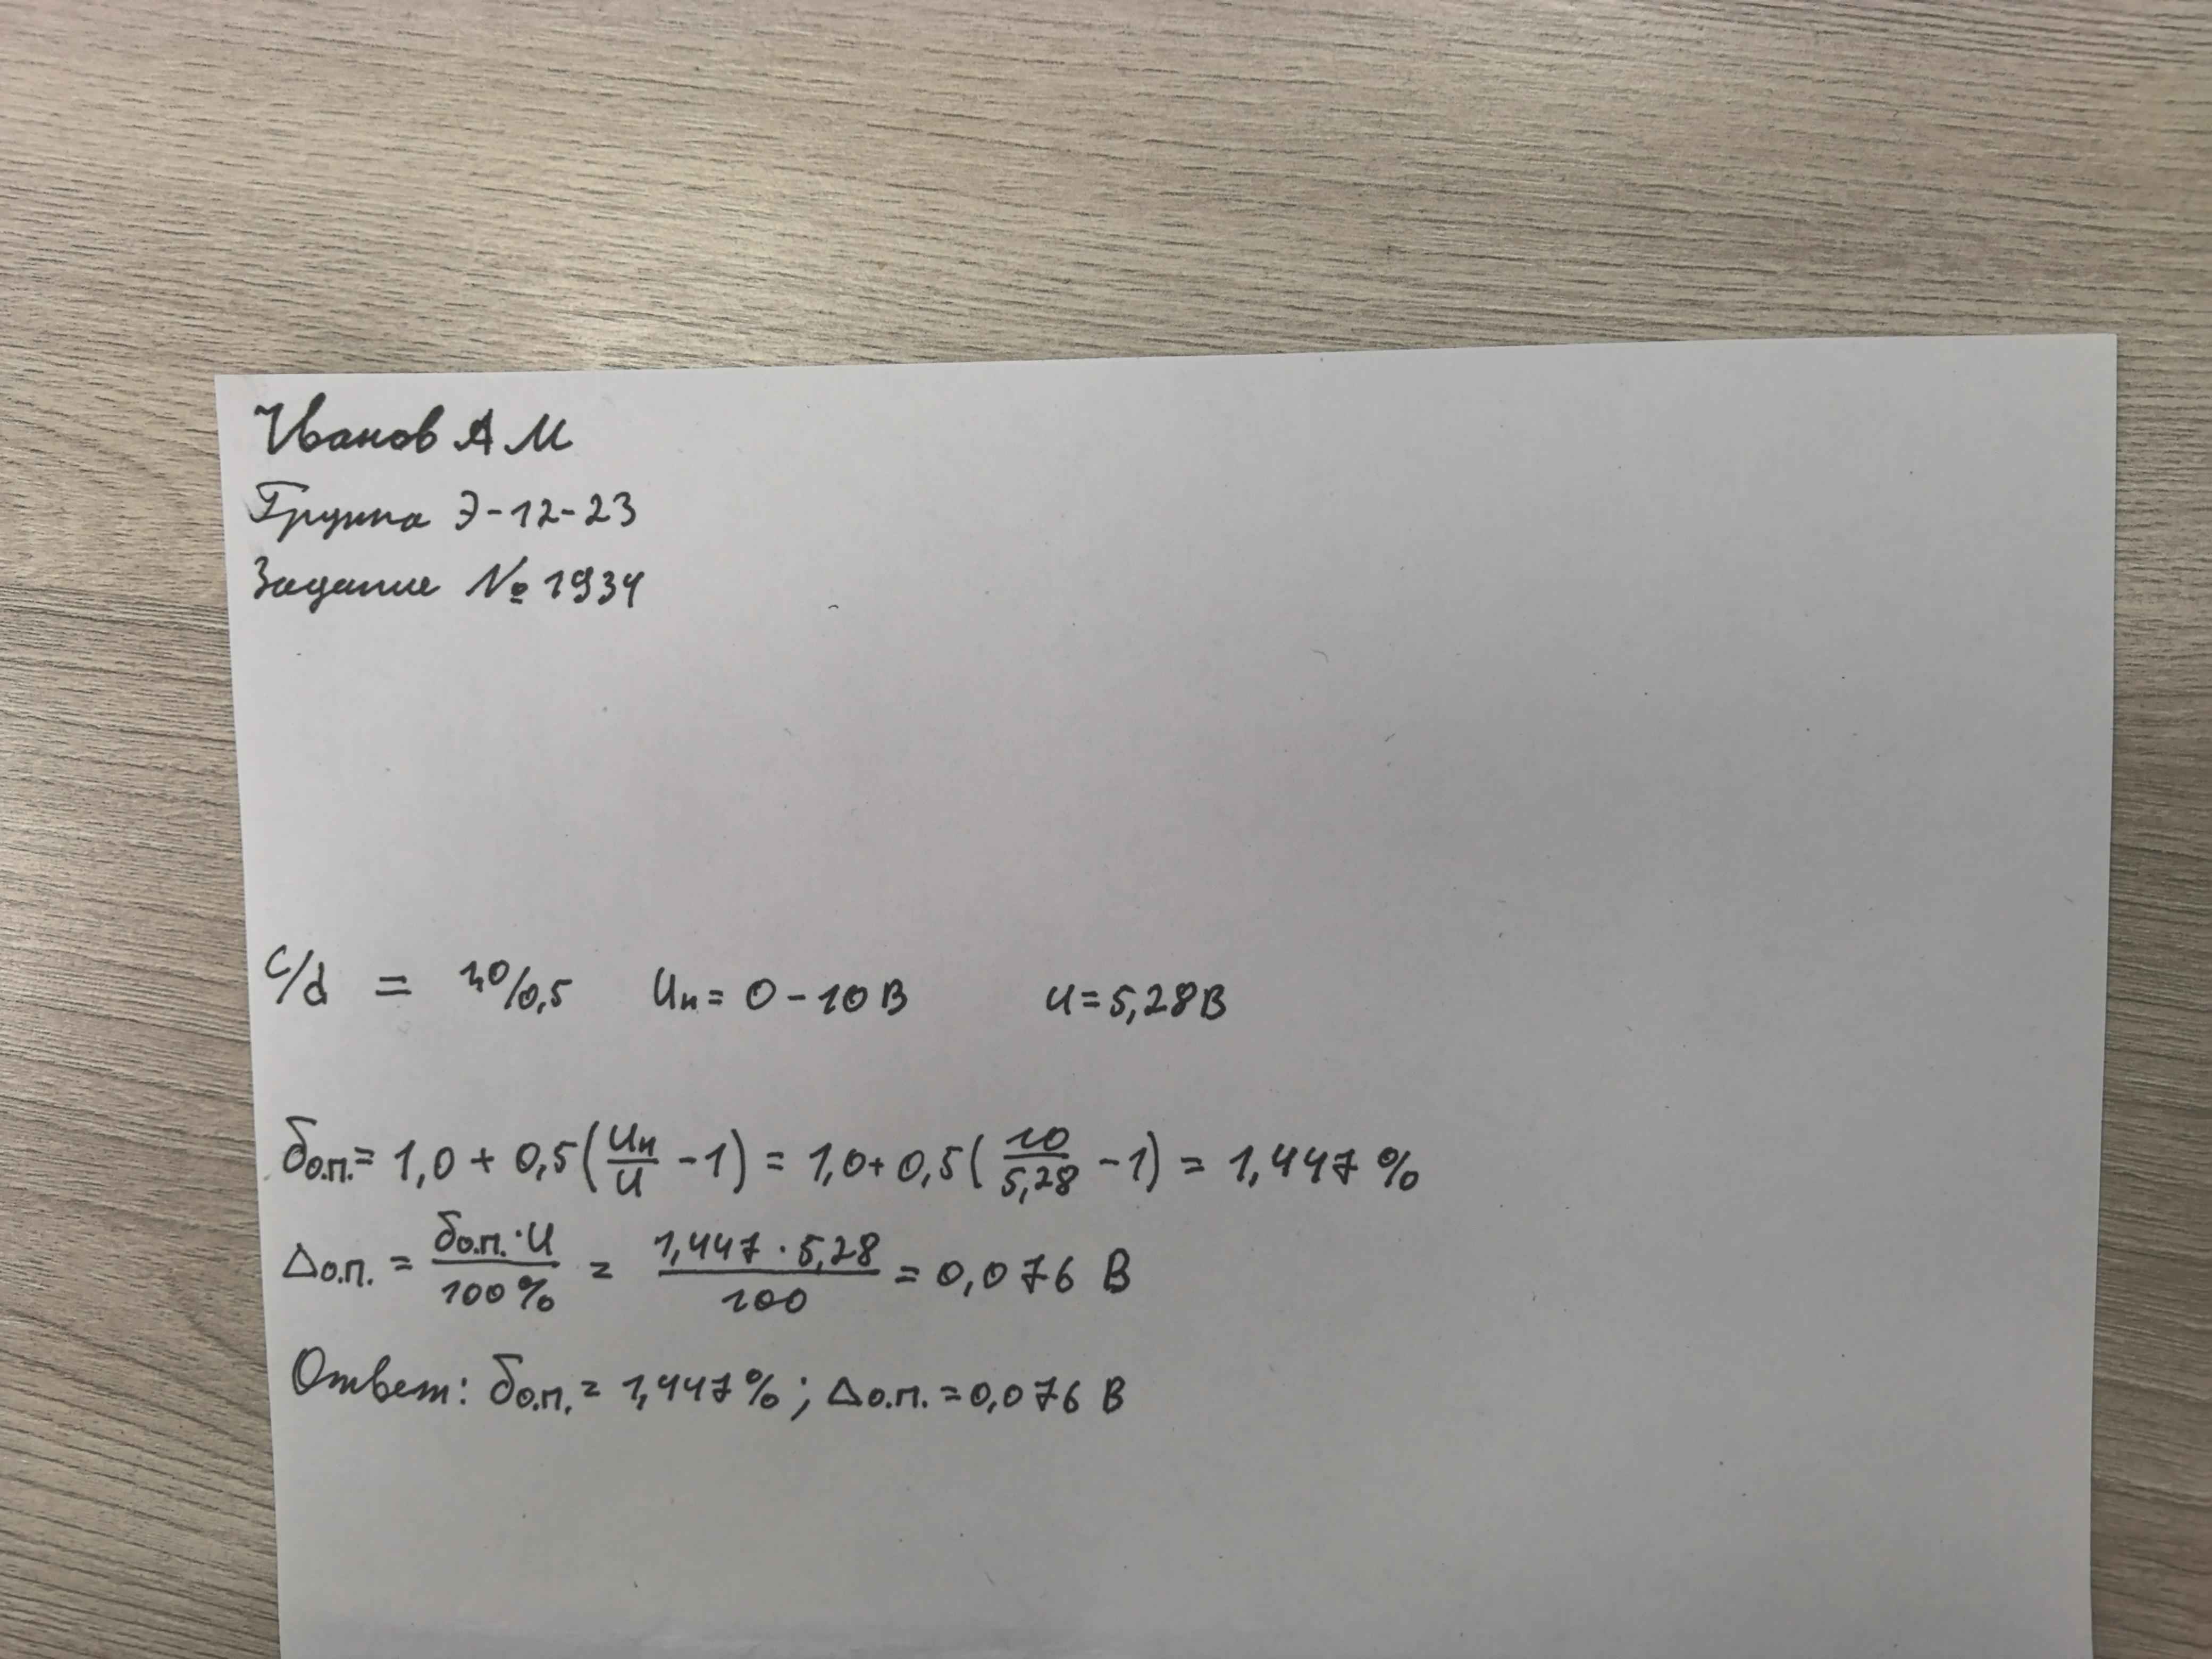 Иванов А М
Группа Э-12-23
Задание № 1934
c/d = 1,0/0,5 Uн = 0 - 10 В U = 5,28 В
δо.п. = 1,0 + 0,5 (Uн/U - 1) = 1,0 + 0,5 (10/5,28 - 1) = 1,447 %
Δо.п. = δо.п. · U / 100 % = 1,447 · 5,28 / 100 = 0,076 В
Ответ: δо.п. = 1,447 % ; Δо.п. = 0,076 В